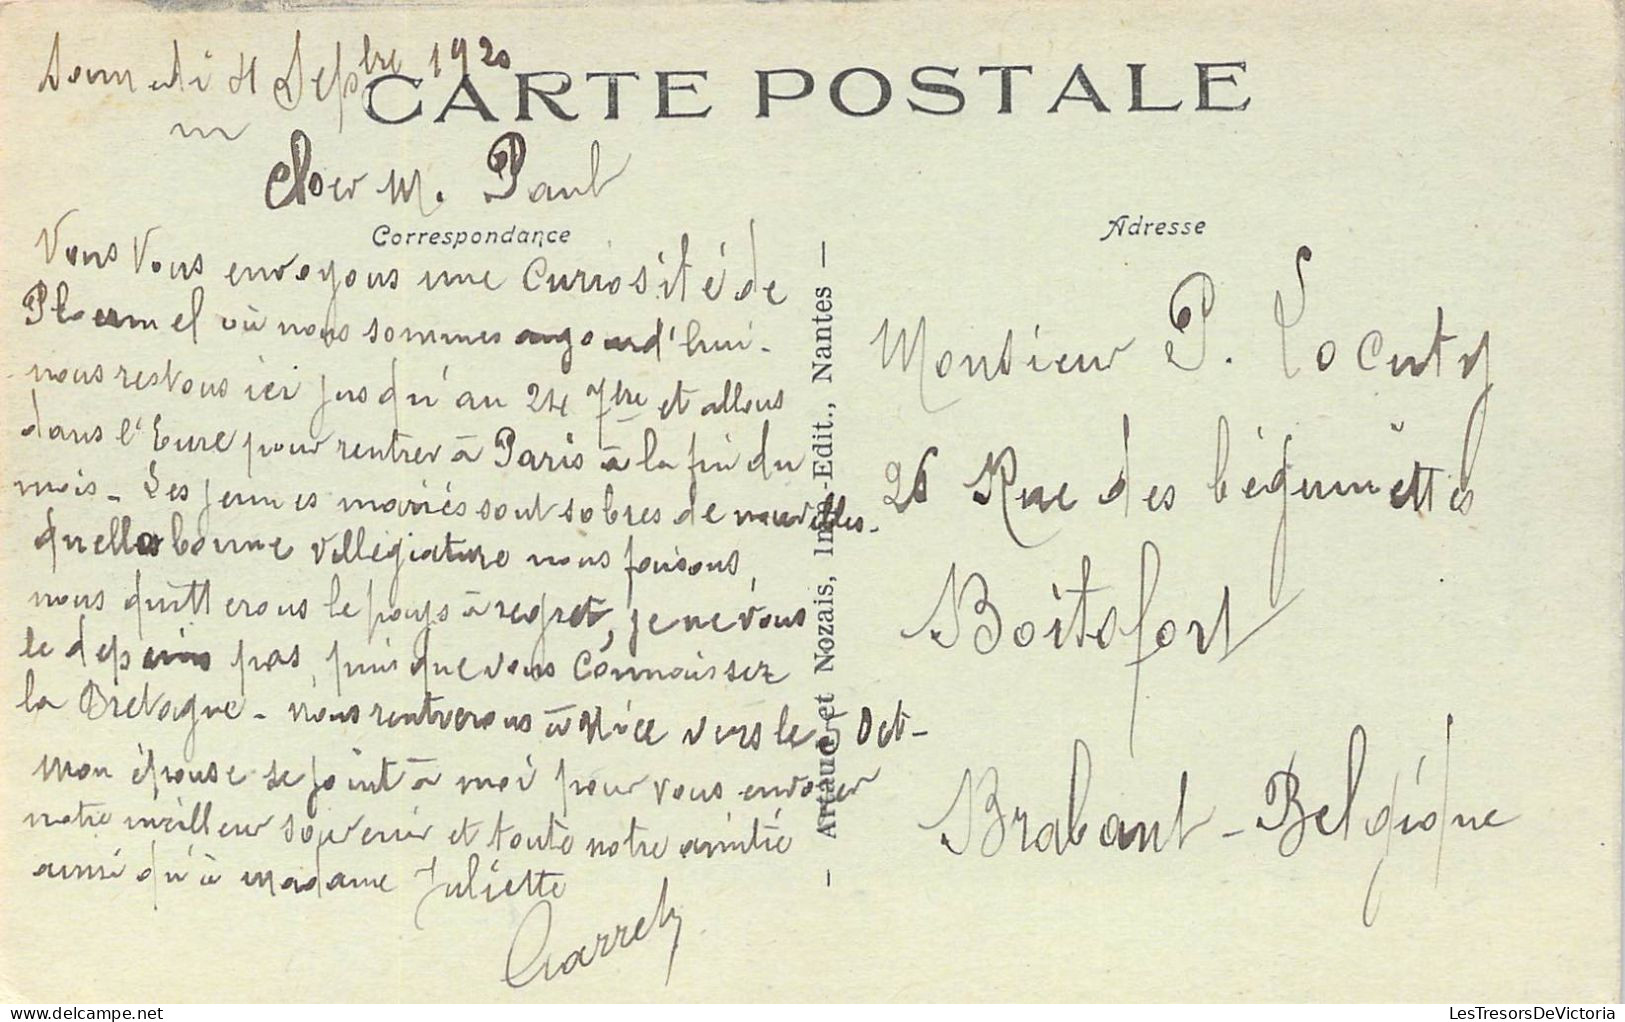 Samedi 4 Sepbre 1920
CARTE POSTALE
Cher M. Paul
Correspondance
Vous Vous envoyons une Curiosité de
Ploermel où nous sommes aujourd'hui.
nous restons ici jusqu'au 24 7bre et allons
dans l'Eure pour rentrer à Paris à la fin du
mois - Les jeunes mariés sont sobres de nouvelles.
quelle bonne villégiature nous faisons,
nous quitterons le pays à regret, je ne vous
le dépeins pas, puisque vous Connaissez
la Bretagne - nous rentrerons à Nice vers le 5 Oct -
Mon épouse se joint à moi pour vous envoyer
notre meilleur souvenir et toute notre amitié
ainsi qu'à Madame Juliette
- Artaud et Nozais, Imp.-Edit., Nantes -
Adresse
Monsieur P. Locuty
26 Rue des béguinettes
Boitsfort
Brabant - Belgique
LesTresorsDeVictoria
delcampe.net